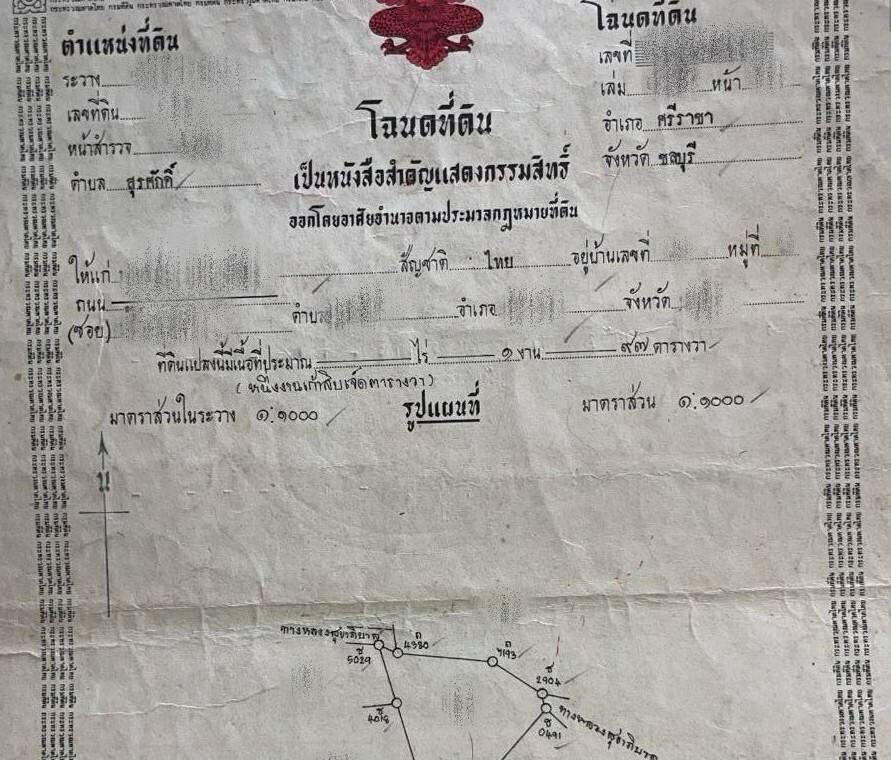 ตำแหน่งที่ดิน
ระวาง
เลขที่ดิน
หน้าสำรวจ
ตำบล สุรศักดิ์
โฉนดที่ดิน
เลขที่
เล่ม หน้า
อำเภอ ศรีราชา
จังหวัด ชลบุรี
โฉนดที่ดิน
เป็นหนังสือสำคัญแสดงกรรมสิทธิ์
ออกโดยอาศัยอำนาจตามประมวลกฎหมายที่ดิน
ให้แก่ สัญชาติ ไทย อยู่บ้านเลขที่ หมู่ที่
ถนน
(ซอย) ตำบล อำเภอ จังหวัด
ที่ดินแปลงนี้มีเนื้อที่ประมาณ ไร่ ๑ งาน ๙๗ ตารางวา
(หนึ่งงานเก้าสิบเจ็ดตารางวา)
มาตราส่วนในระวาง ๑:๑๐๐๐ รูปแผนที่ มาตราส่วน ๑:๑๐๐๐
น
ทางหลวงสุขาภิบาล
ช 5029
4330
7193
ช 2904
ช 0491
ทางหลวงสุขาภิบาล